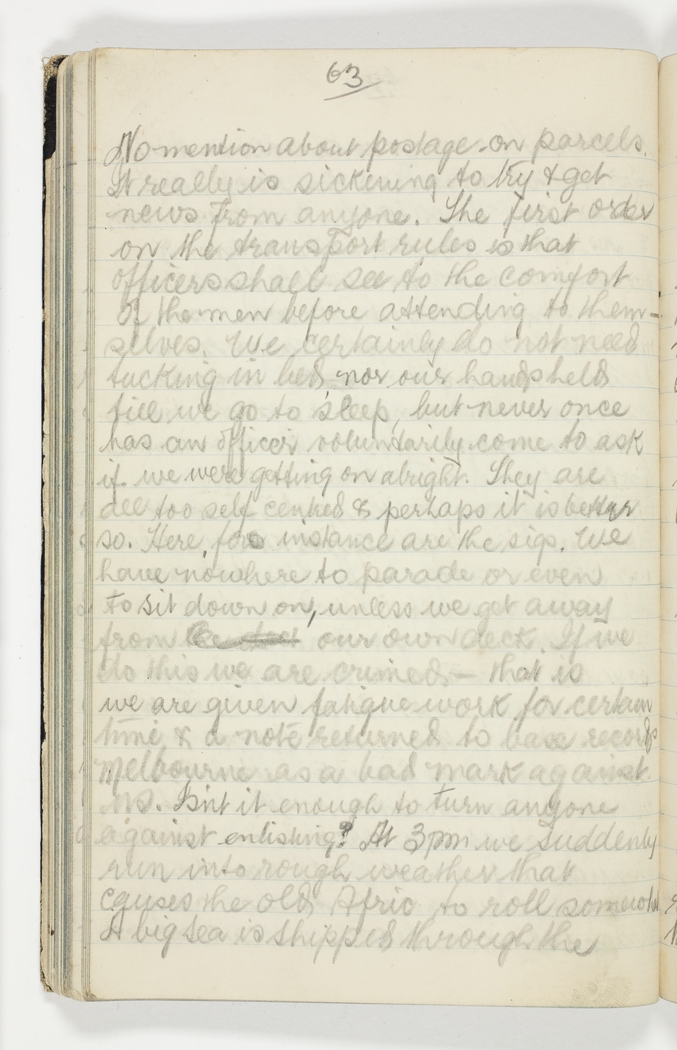 63
No mention about postage on parcels.
It really is sickening to try & get
news from anyone. The first order
on the transport rules is that
officers shall see to the comfort
of the men before attending to them-
selves. We certainly do not need
tucking in bed nor our hands held
till we go to sleep, but never once
has an officer voluntarily come to ask
if we were getting on alright. They are
all too self centred & perhaps it is better
so. Here, for instance are the sigs. We
have nowhere to parade or even
to sit down on, unless we get away
from our own deck. If we
do this we are crimed - that is
we are given fatigue work for certain
time & a note returned to base records
Melbourne as a bad mark against
us. Isnt it enough to turn anyone
against enlisting? At 3pm we suddenly
run into rough weather that
causes the old Afric to roll somewhat
A big sea is shipped through the